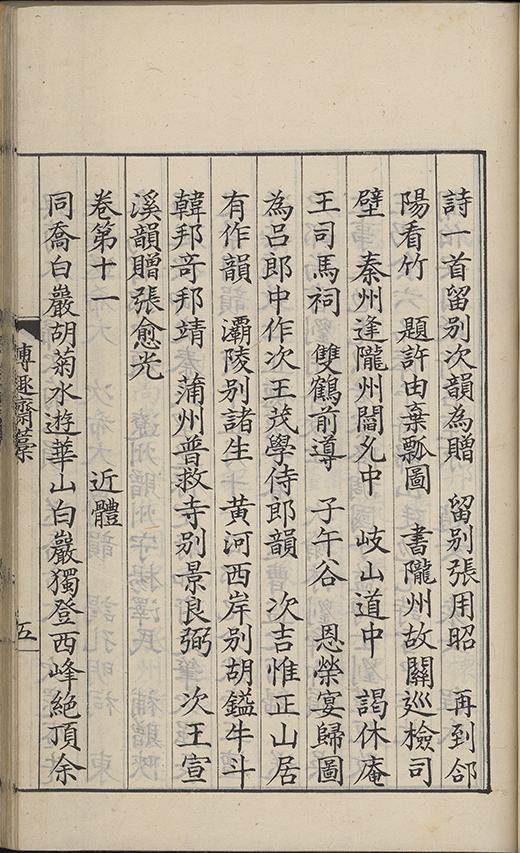 詩一首留別次韻為贈　留別張用昭　再到郃
陽看竹　題許由棄瓢圖　書隴州故關巡檢司
壁　秦州逢隴州閻允中　岐山道中　謁休庵
王司馬祠　雙鶴前導　子午谷　恩榮宴歸圖
為呂郎中作次王茂學侍郎韻　次吉惟正山居
有作韻　灞陵別諸生　黃河西岸別胡鎰牛斗
韓邦奇邦靖　蒲州普救寺別景良弼　次王宣
溪韻贈張愈光
卷第十一　近體
同喬白巖胡菊水遊華山白巖獨登西峰絕頂余
博趣齋藁
五